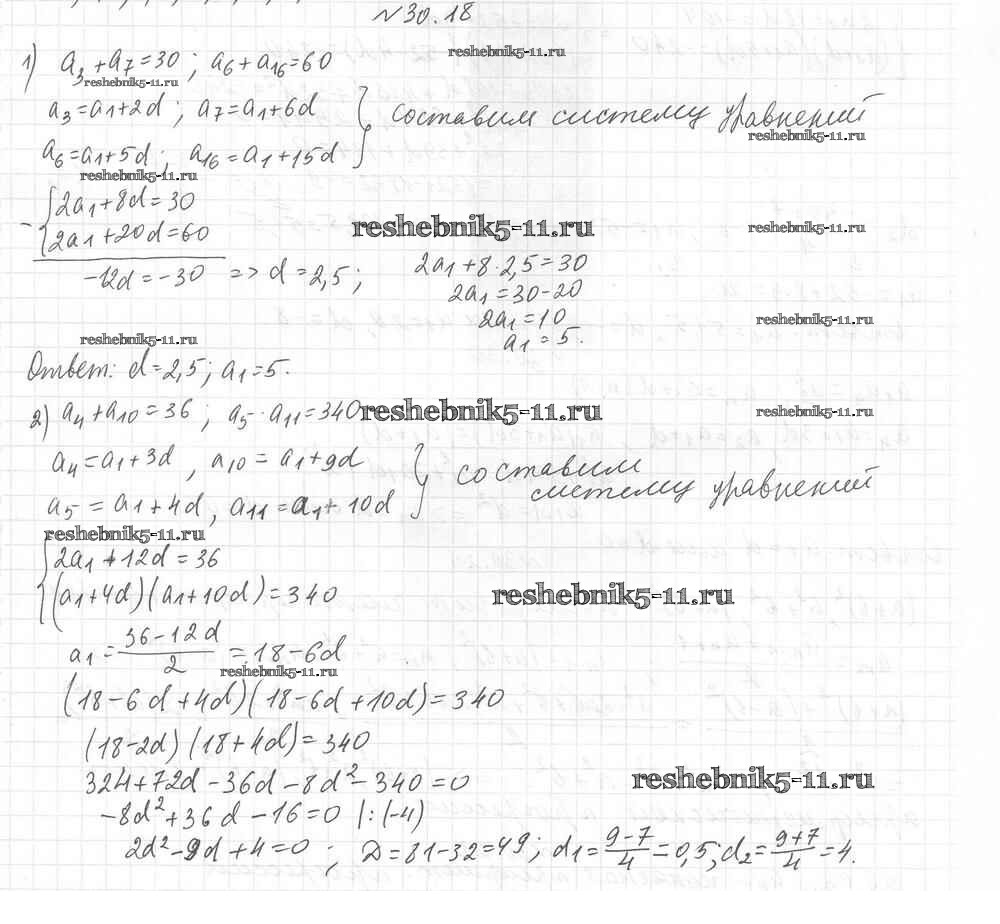 №30.18
1) a₃+a₇=30; a₆+a₁₆=60
reshebnik5-11.ru
reshebnik5-11.ru
a₃=a₁+2d; a₇=a₁+6d } составим систему уравнений
reshebnik5-11.ru
a₆=a₁+5d; a₁₆=a₁+15d
reshebnik5-11.ru
- { 2a₁+8d=30
2a₁+20d=60
reshebnik5-11.ru
reshebnik5-11.ru
-12d=-30 => d=2,5; 2a₁+8·2,5=30
2a₁=30-20
2a₁=10
reshebnik5-11.ru
a₁=5.
reshebnik5-11.ru
Ответ: d=2,5; a₁=5.
2) a₄+a₁₀=36; a₅·a₁₁=340
reshebnik5-11.ru
reshebnik5-11.ru
a₄=a₁+3d, a₁₀=a₁+9d } составим
a₅=a₁+4d, a₁₁=a₁+10d систему уравнений
reshebnik5-11.ru
{ 2a₁+12d=36
(a₁+4d)(a₁+10d)=340
reshebnik5-11.ru
a₁=\frac{36-12d}{2}=18-6d
reshebnik5-11.ru
(18-6d+4d)(18-6d+10d)=340
(18-2d)(18+4d)=340
324+72d-36d-8d²-340=0
reshebnik5-11.ru
-8d²+36d-16=0 |:(-4)
2d²-9d+4=0; D=81-32=49; d₁=\frac{9-7}{4}=0,5; d₂=\frac{9+7}{4}=4.